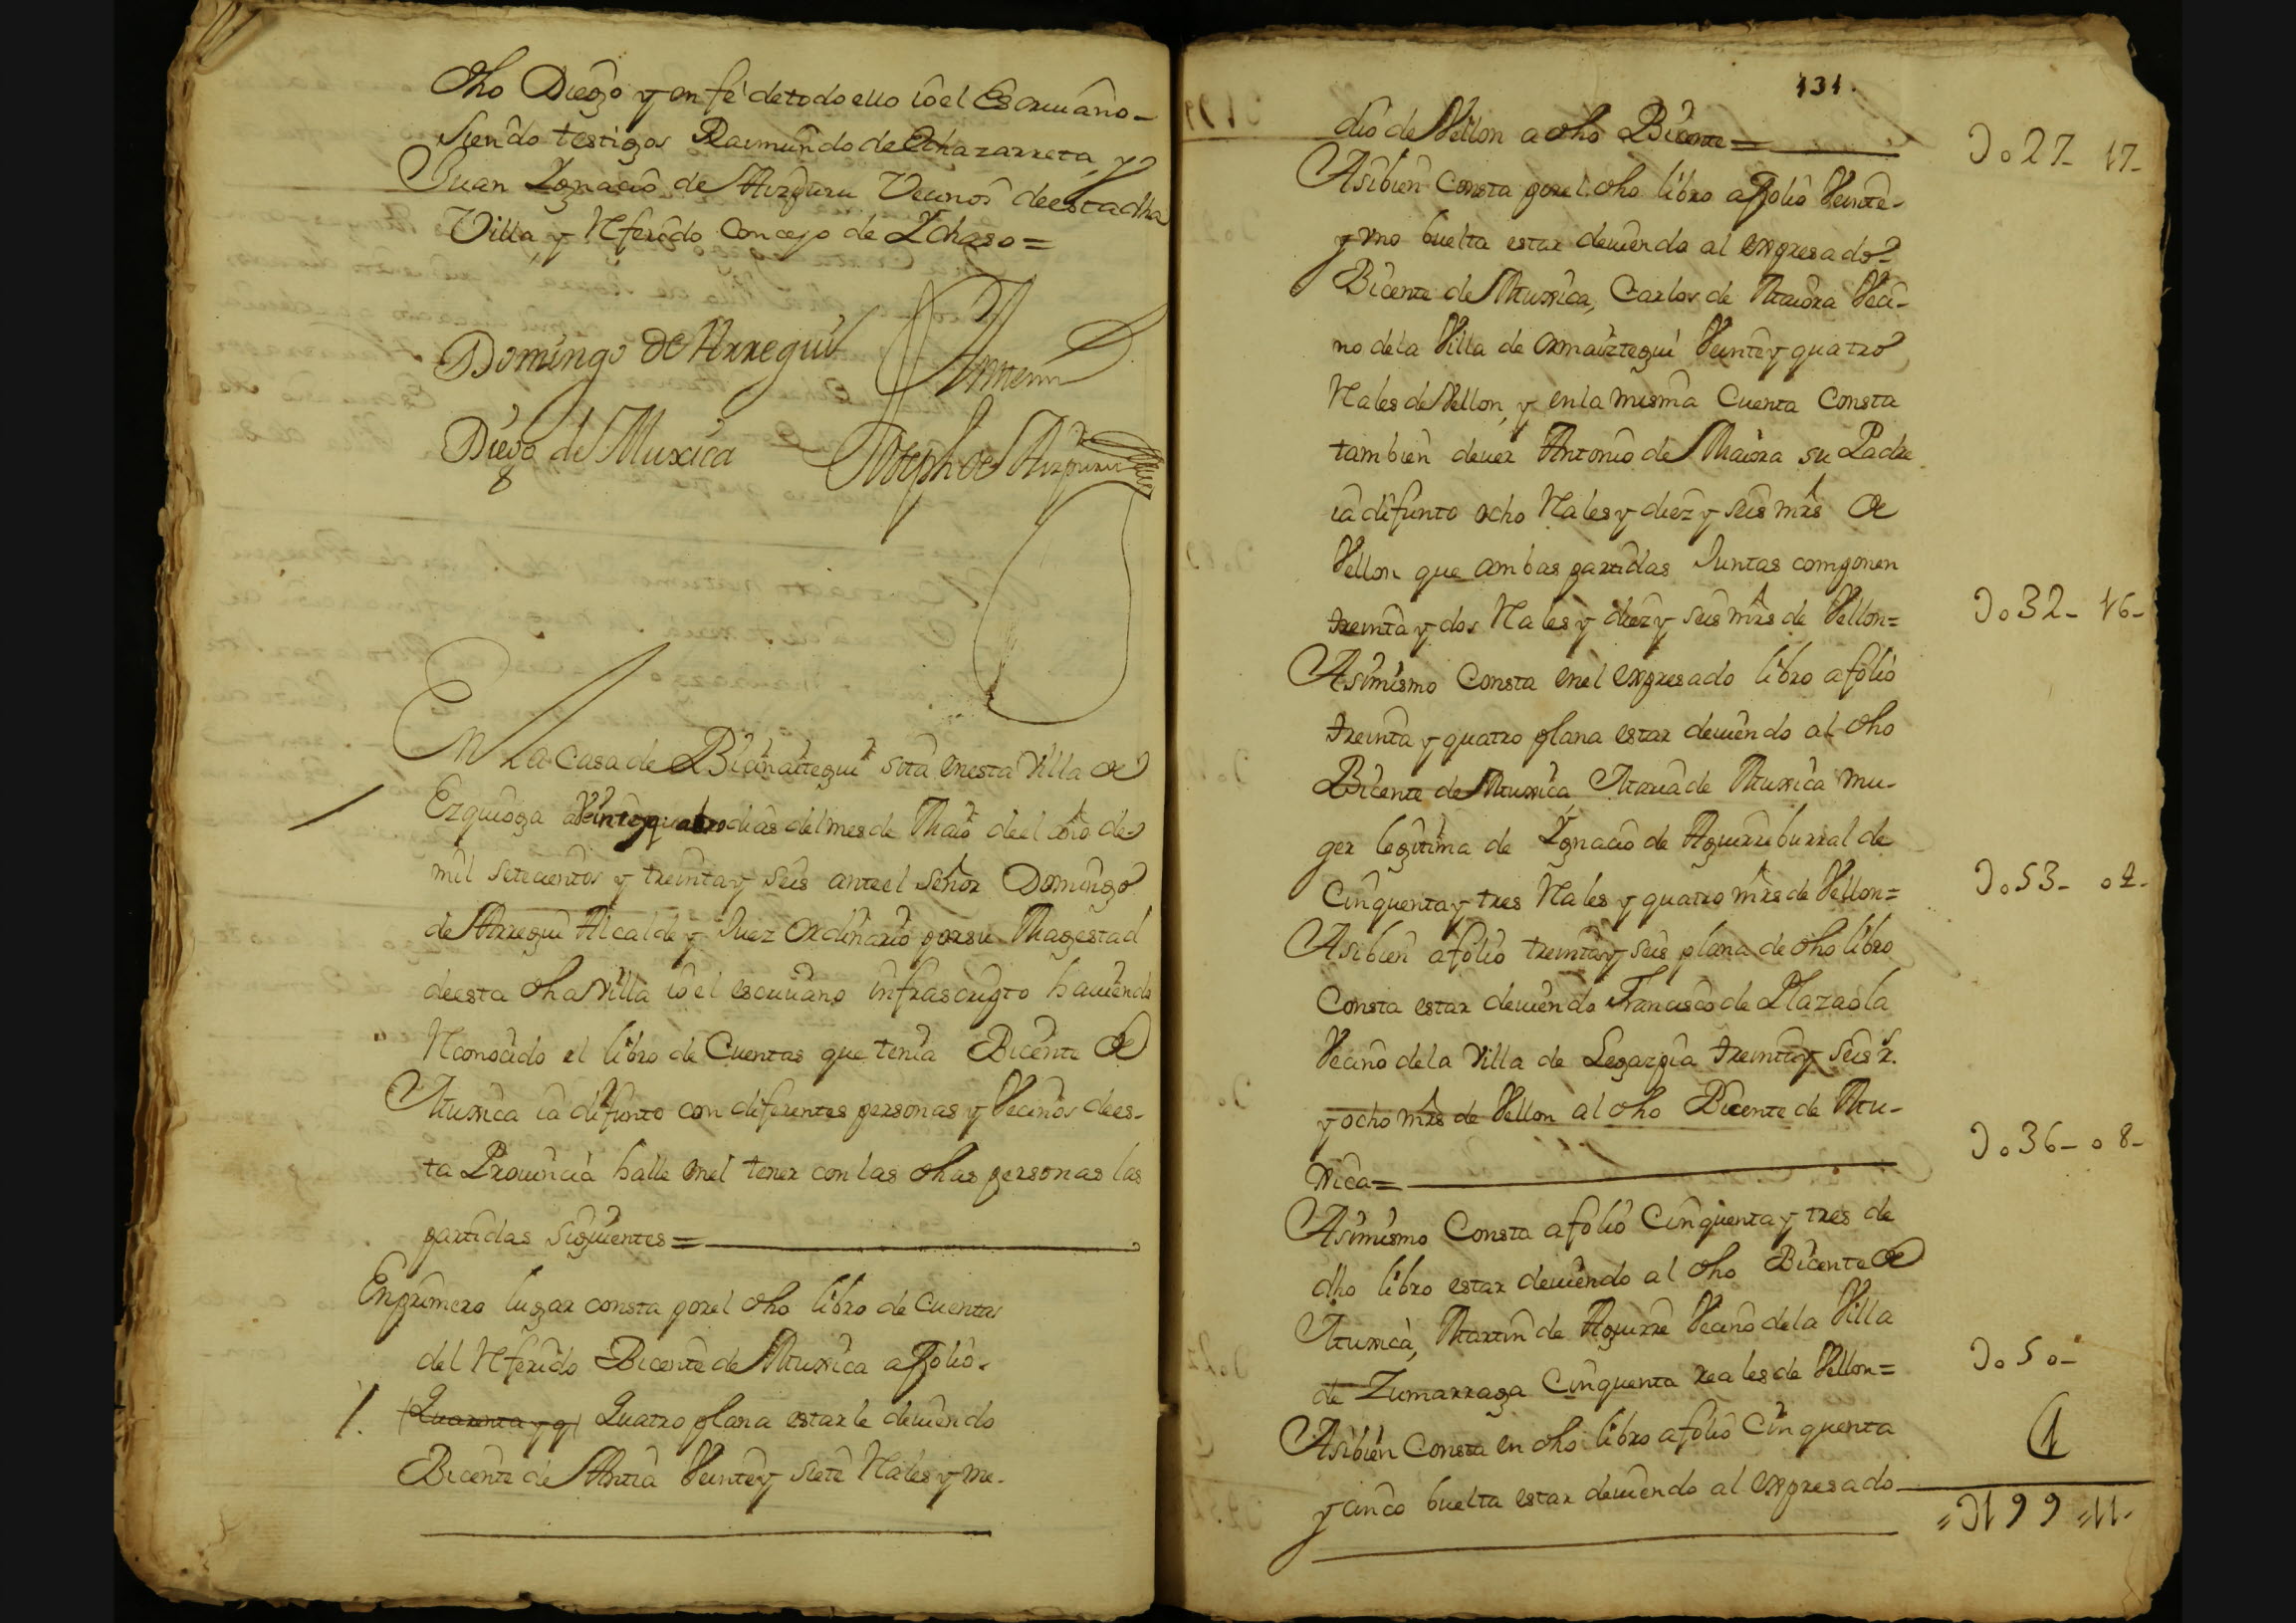 dho Diego y en fe de todo ello io el Escriuano-
siendo testigos Raimundo de Echazarreta, y
Juan Ignacio de Aizpuru Vecinos de esta dha
Villa, y Rferido Concejo de Ichaso=
Domingo de Arregui
Antemi
Diego de Muxica
Joseph de Aizpuru
En La Casa de Bicinaitegui sita en esta Villa de
Ezquioga a Veinte y quatro dias del mes de Maio de el año de
mil setecientos y treinta y seis ante el señor Domingo
de Arregui Alcalde y Juez ordinario por su Magestad
de esta dha Villa io el escriuano infrascripto hauiendo
Rconocido el libro de Cuentas que tenia Bicente de
Muxica ia difunto con diferentes personas y Vecinos de es-
ta Prouincia halle en el tener con las dhas personas las
partidas siguientes=
En primero lugar consta por el dho libro de Cuentas
del Rferido Bicente de Muxica a folio
1. (Quarenta y q) Quatro plana estarle deuiendo
Bicente de Antia Veinte y siete Rales y me-
131.
dio de Vellon a dho Bicente=
Do27- 17-
Asibien Consta por el dho libro a folio Veinte
y uno buelta estar deuiendo al expresado
Bicente de Muxica, Carlos de Maiora Veci-
no de la Villa de Ormaiztegui Veinte y quatro
Rales de Vellon, y en la misma Cuenta Consta
tambien deuer Antonio de Maiora su Padre
ia difunto ocho Rales y diez y seis mrs de
Vellon que ambas partidas Juntas componen
treinta y dos Rales y diez y seis mrs de Vellon=
Do32- 16-
Asimismo Consta en el expresado libro a folio
treinta y quatro plana estar deuiendo al dho
Bicente de Muxica, Maria de Muxica mu-
ger legitima de Ignacio de Aguirreburral de
Cinquenta y tres Rales y quatro mrs de Vellon=
Do53- o4-
Asibien a folio treinta y seis plana de dho libro
Consta estar deuiendo Francisco de Plazaola
Vecino de la Villa de Legazpia treinta y seis r.
y ocho mrs de Vellon al dho Bicente de Mu-
Do36- o8-
xica=
Asimismo Consta a folio Cinquenta y tres de
dho libro estar deuiendo al dho Bicente de
Muxica, Martin de Aguirre Vecino de la Villa
de Zumarraga Cinquenta reales de Vellon=
Do5o-
Asibien Consta en dho libro a folio Cinquenta
y cinco buelta estar deuiendo al expresado
D199 11-